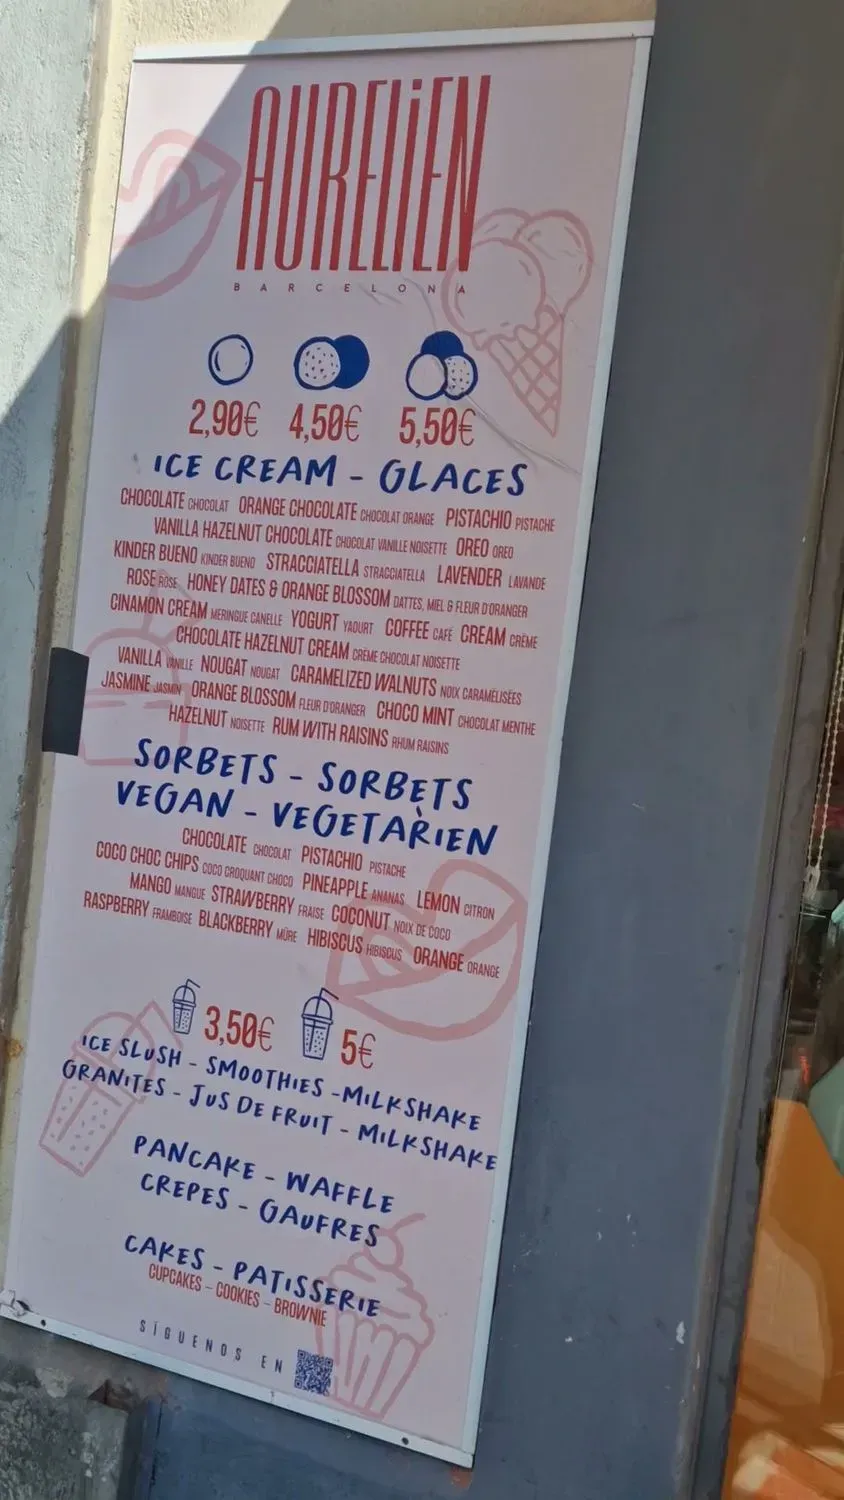 AURELiEN
BARCELONA
2,90€ 4,50€ 5,50€
ICE CREAM - GLACES
CHOCOLATE CHOCOLAT ORANGE CHOCOLATE CHOCOLAT ORANGE PISTACHIO PISTACHE
VANILLA HAZELNUT CHOCOLATE CHOCOLAT VANILLE NOISETTE OREO OREO
KINDER BUENO KINDER BUENO STRACCIATELLA STRACCIATELLA LAVENDER LAVANDE
ROSE ROSE HONEY DATES & ORANGE BLOSSOM DATTES, MIEL & FLEUR D'ORANGER
CINAMON CREAM MERINGUE CANELLE YOGURT YAOURT COFFEE CAFÉ CREAM CRÈME
CHOCOLATE HAZELNUT CREAM CRÈME CHOCOLAT NOISETTE
VANILLA VANILLE NOUGAT NOUGAT CARAMELIZED WALNUTS NOIX CARAMÉLISÉES
JASMINE JASMIN ORANGE BLOSSOM FLEUR D'ORANGER CHOCO MINT CHOCOLAT MENTHE
HAZELNUT NOISETTE RUM WITH RAISINS RHUM RAISINS
SORBETS - SORBETS
VEGAN - VEGETARIEN
CHOCOLATE CHOCOLAT PISTACHIO PISTACHE
COCO CHOC CHIPS COCO CROQUANT CHOCO PINEAPPLE ANANAS LEMON CITRON
MANGO MANGUE STRAWBERRY FRAISE COCONUT NOIX DE COCO
RASPBERRY FRAMBOISE BLACKBERRY MÛRE HIBISCUS HIBISCUS ORANGE ORANGE
3,50€ 5€
ICE SLUSH - SMOOTHIES - MILKSHAKE
GRANITES - JUS DE FRUIT - MILKSHAKE
PANCAKE - WAFFLE
CREPES - GAUFRES
CAKES - PATISSERIE
CUPCAKES - COOKIES - BROWNIE
SÍGUENOS EN